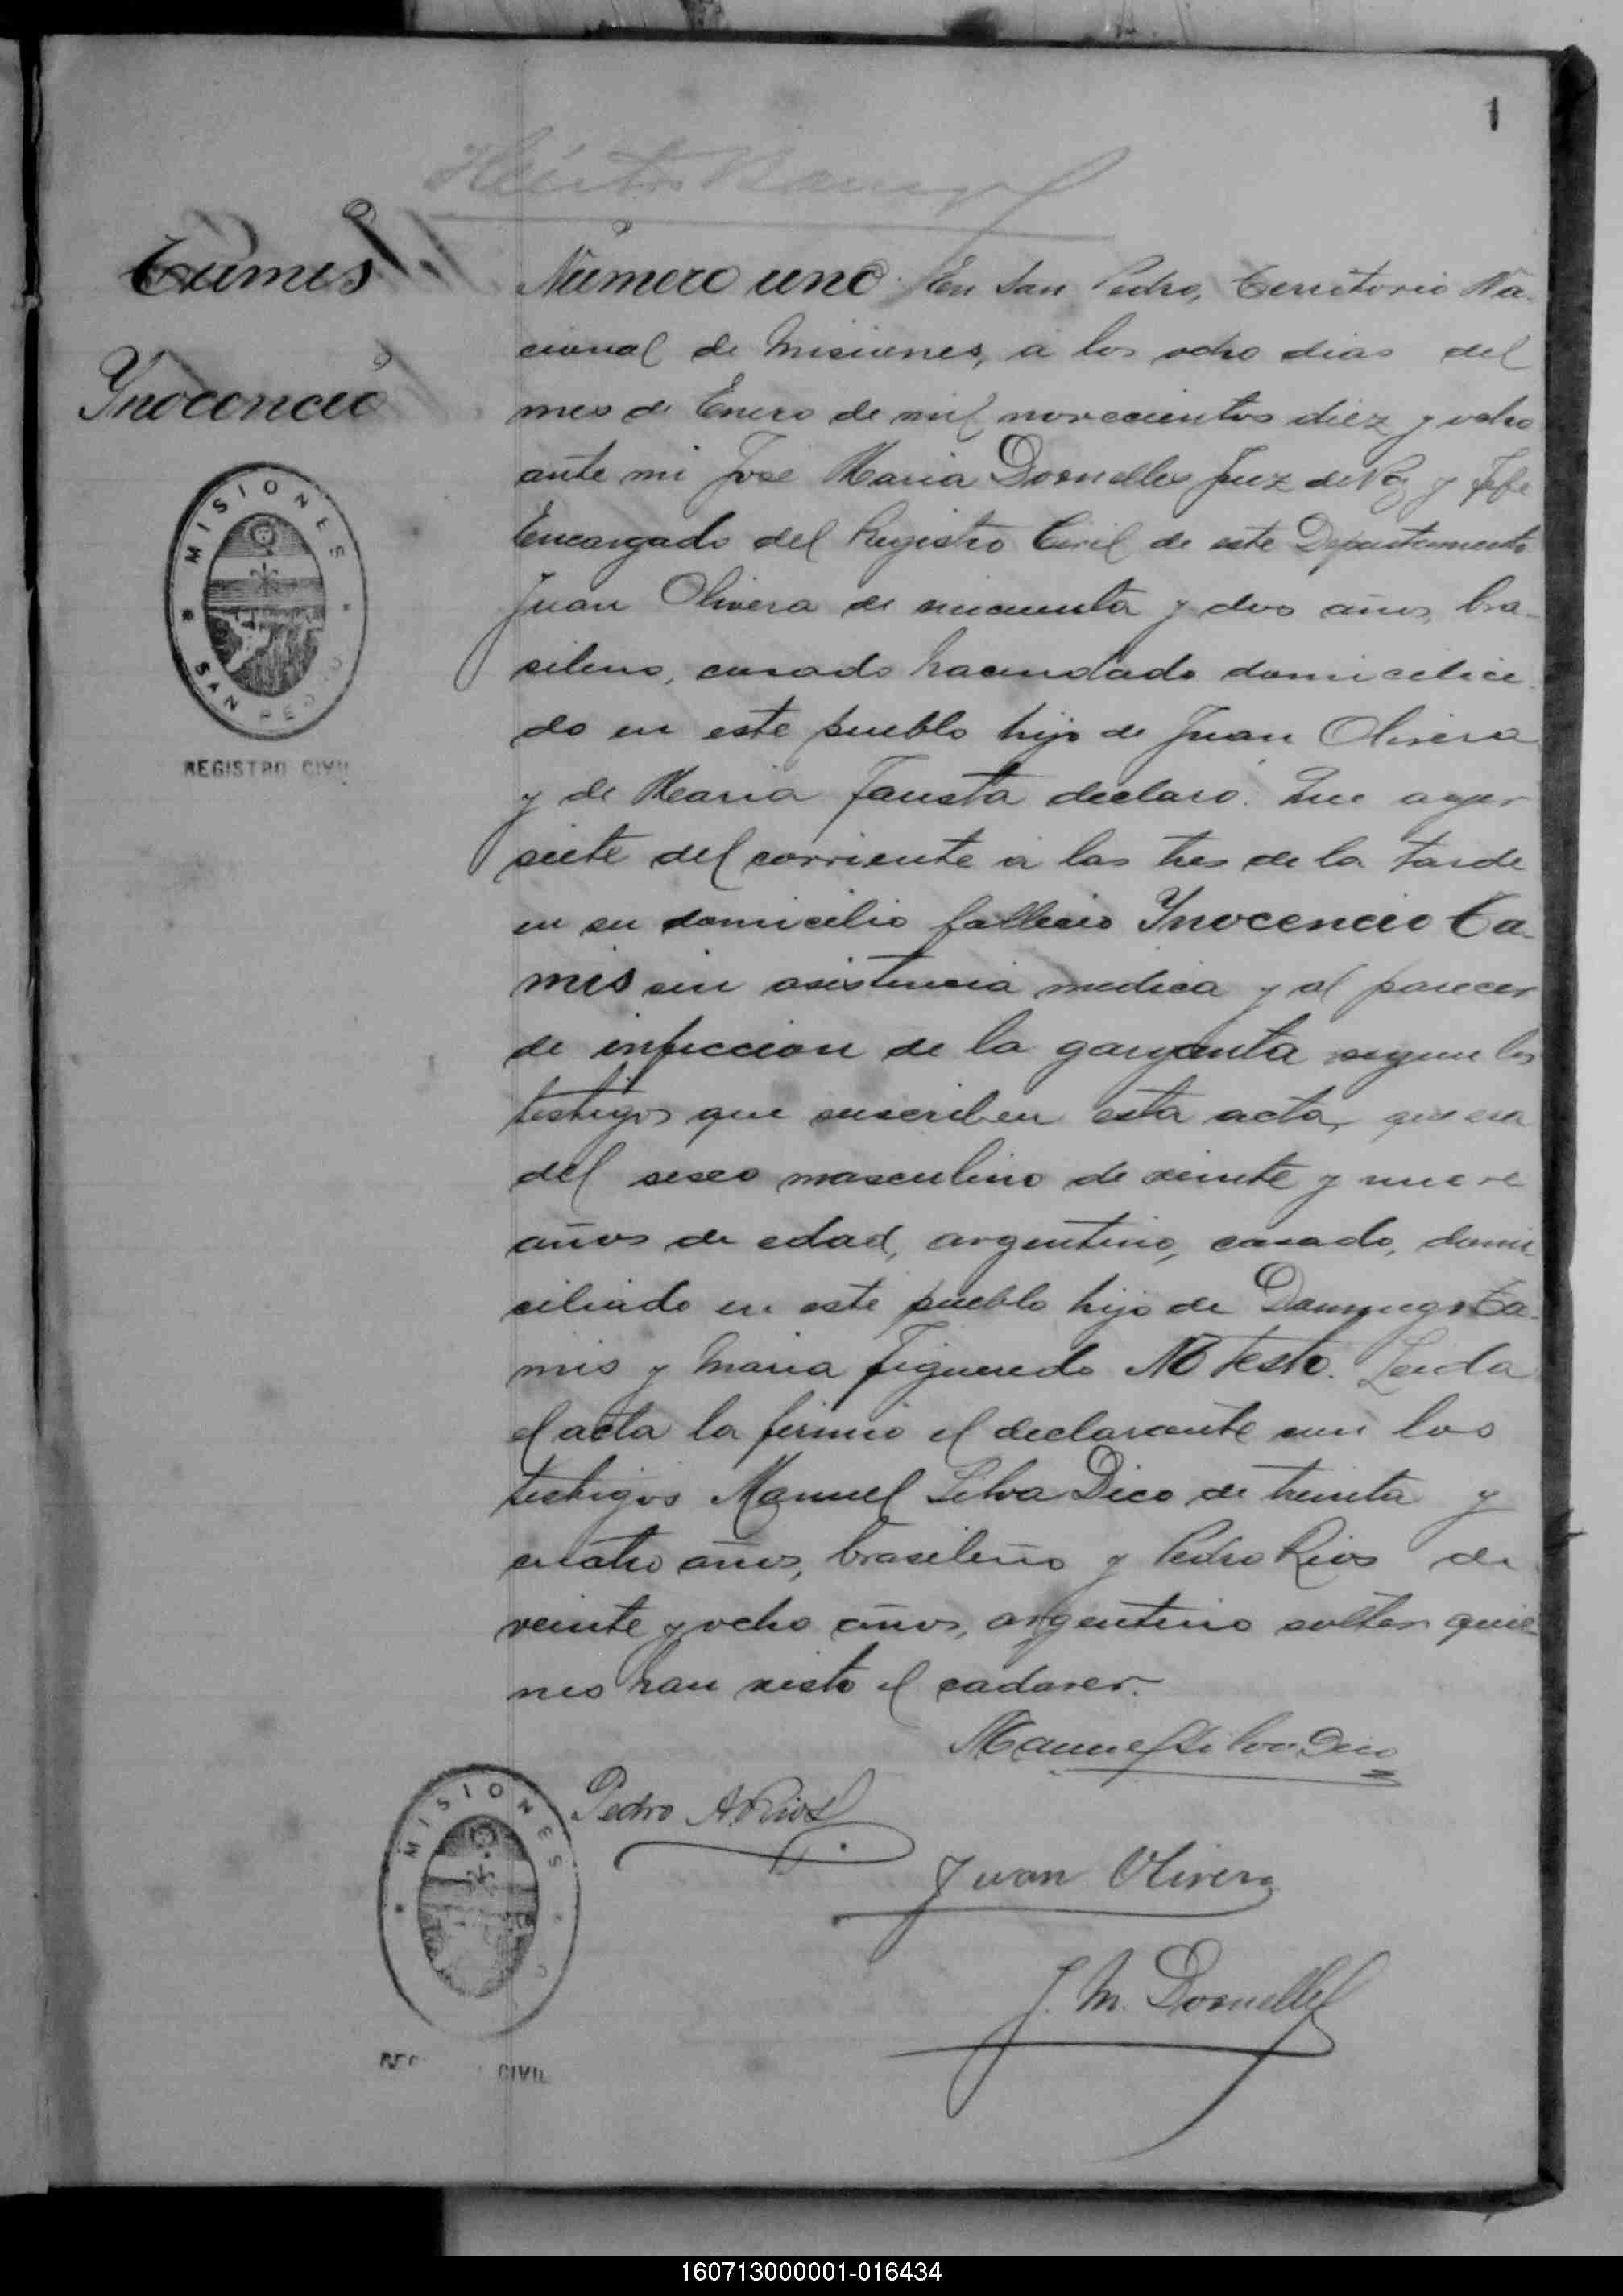 1
Tamis
Ynocencio
MISIONES
SAN PEDRO
REGISTRO CIVIL
Número uno. En San Pedro, Territorio Na-
cional de Misiones, a los ocho dias del
mes de Enero de mil novecientos diez y ocho
ante mi José Maria Dornelles Juez de Paz y Jefe
Encargado del Registro Civil de este Departamento
Juan Olivera de cincuenta y dos años, bra-
sileno, casado hacendado domicilia-
do en este pueblo hijo de Juan Olivera
y de Maria Fausta declaró: Que ayer
siete del corriente a las tres de la tarde
en su domicilio fallecio Ynocencio Ta-
mis sin asistencia medica y al parecer
de infeccion de la garganta segun los
testigos que suscriben esta acta, que era
del sexo masculino de veinte y nueve
años de edad, argentino, casado, domi-
ciliado en este pueblo hijo de Domingo Ta-
mis y Maria Figueredo No testó. Leida
el acta la firmó el declarante con los
testigos Manuel Silva Dico de treinta y
cuatro años, brasileño y Pedro Rios de
veinte y ocho años, argentino soltero quie-
nes han visto el cadaver.
Manuel Silva Dico
Pedro A Rios
MISIONES
Juan Olivera
J. M. Dornelles
REG CIVIL
160713000001-016434